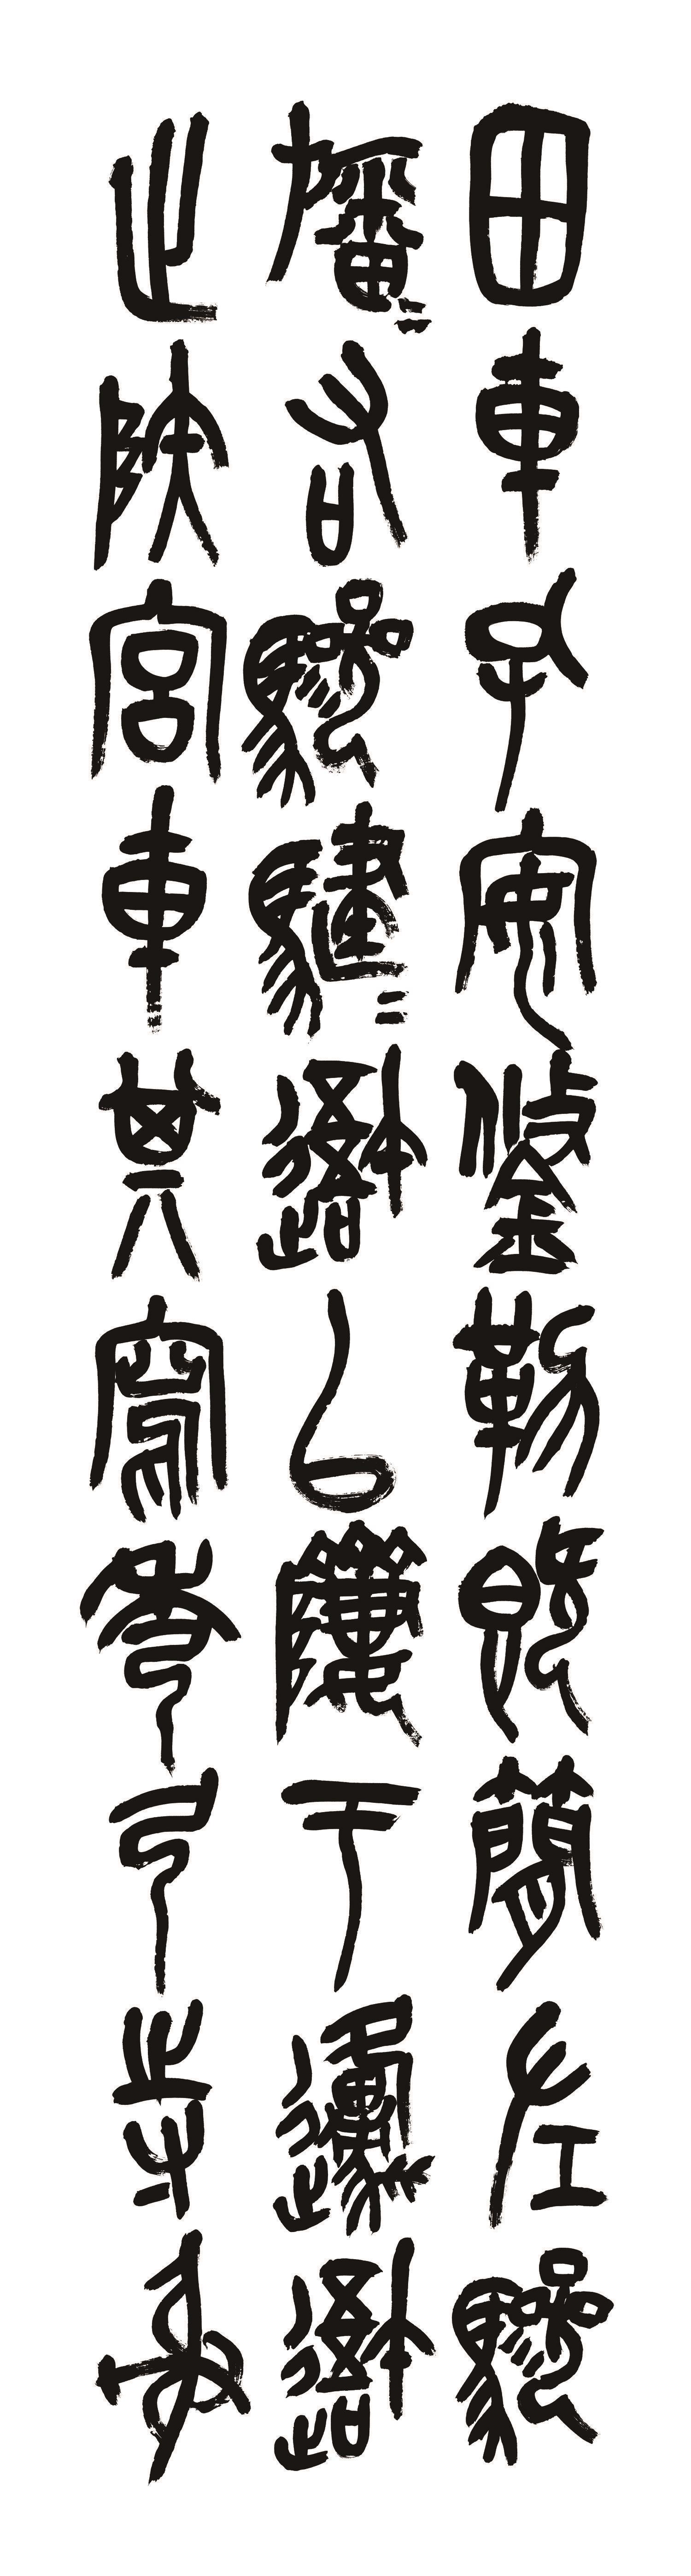 田車孔安鋚勒既簡左驂
旛=右驂騝=吾以隮于邍吾
止陕宮車其寫秀弓寺射